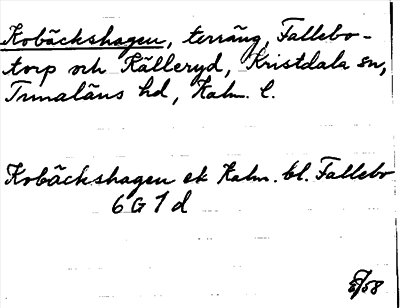 Kobäckshagen, terräng, Fallebo-
torp och Källeryd, Kristdala sn,
Tunaläns hd, Kalm. l.
Kobäckshagen ek Kalm. bl. Fallebo
6 G 7 d